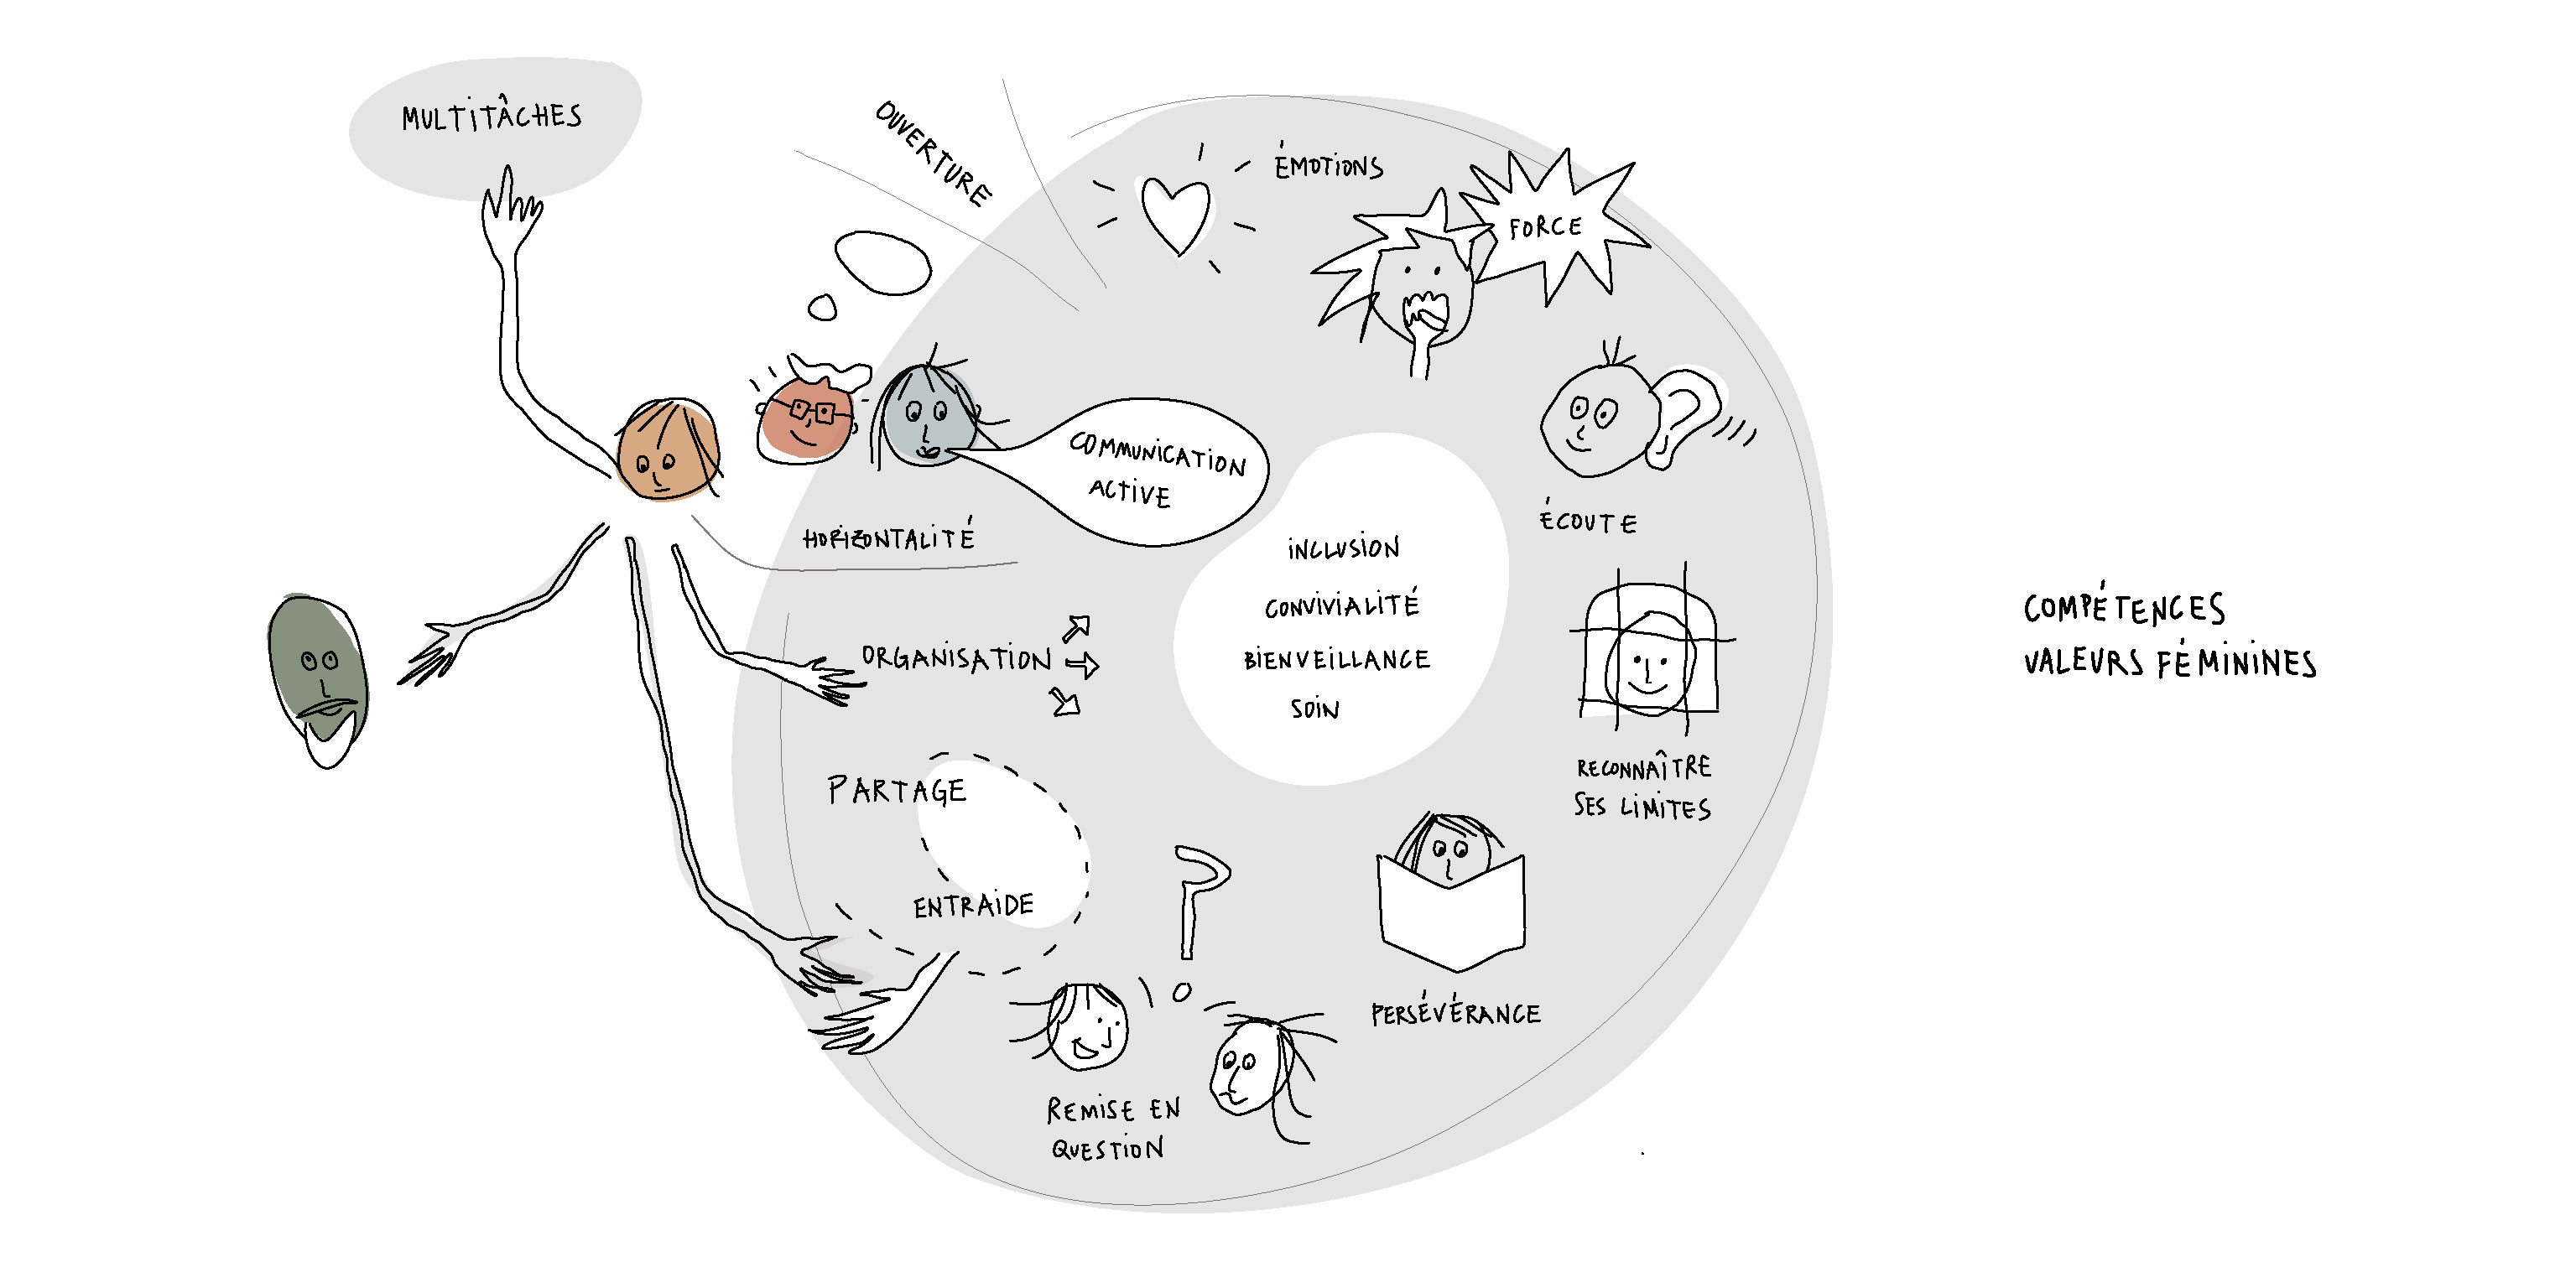 MULTITÂCHES
OUVERTURE
ÉMOTIONS
FORCE
COMMUNICATION
ACTIVE
HORIZONTALITÉ
ÉCOUTE
INCLUSION
CONVIVIALITÉ
BIENVEILLANCE
SOIN
ORGANISATION
RECONNAÎTRE
SES LIMITES
PARTAGE
ENTRAIDE
?
PERSÉVÉRANCE
REMISE EN
QUESTION
COMPÉTENCES
VALEURS FÉMININES